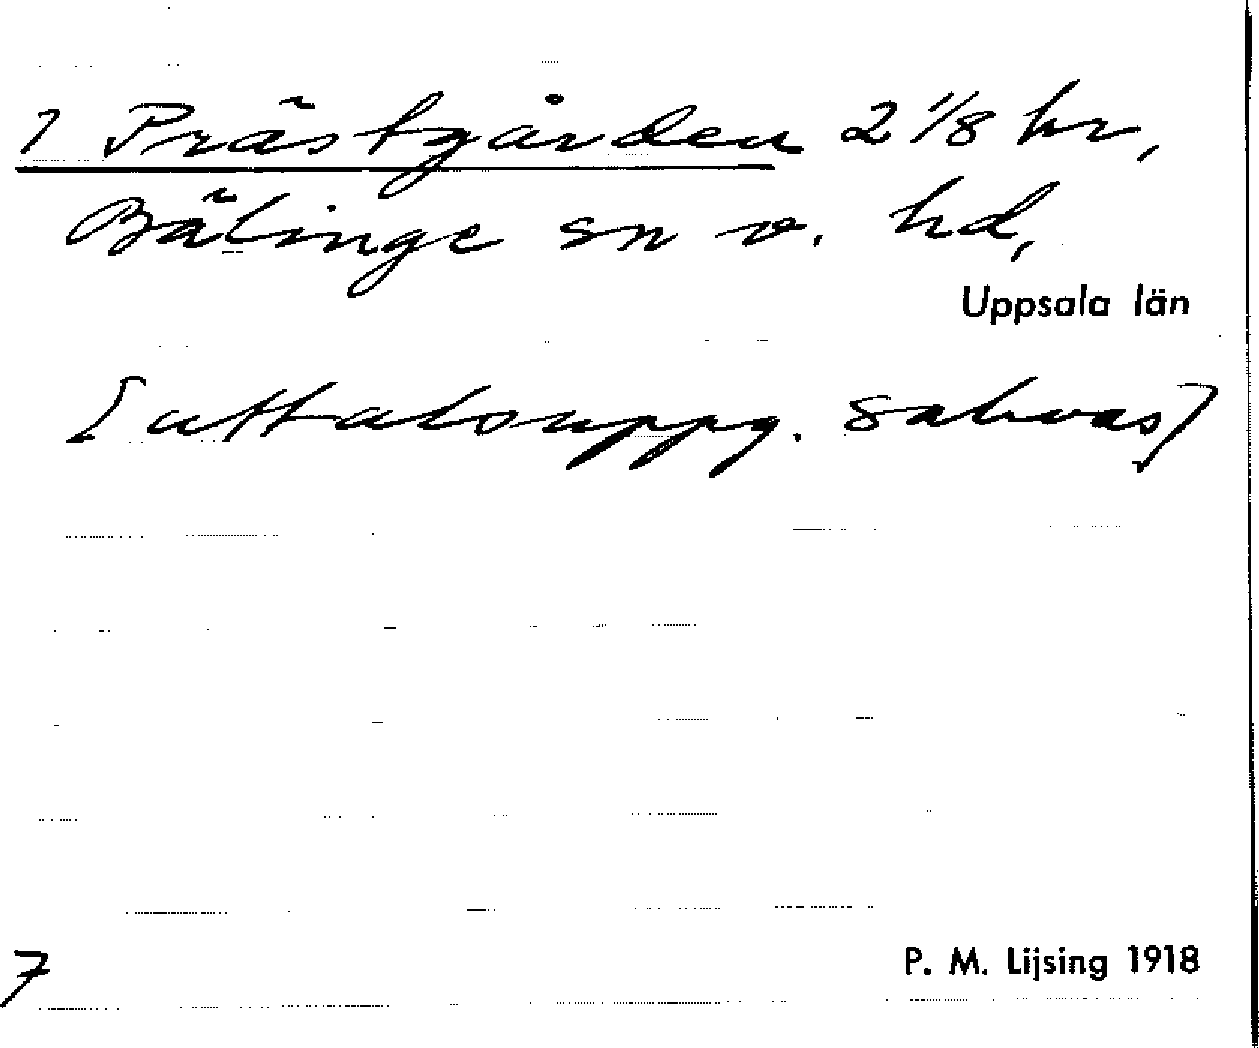 1 Prästgården 2 1/8 hr,
Bälinge sn o. hd,
Uppsala län
[uttalsuppg. saknas]
7
P. M. Lijsing 1918